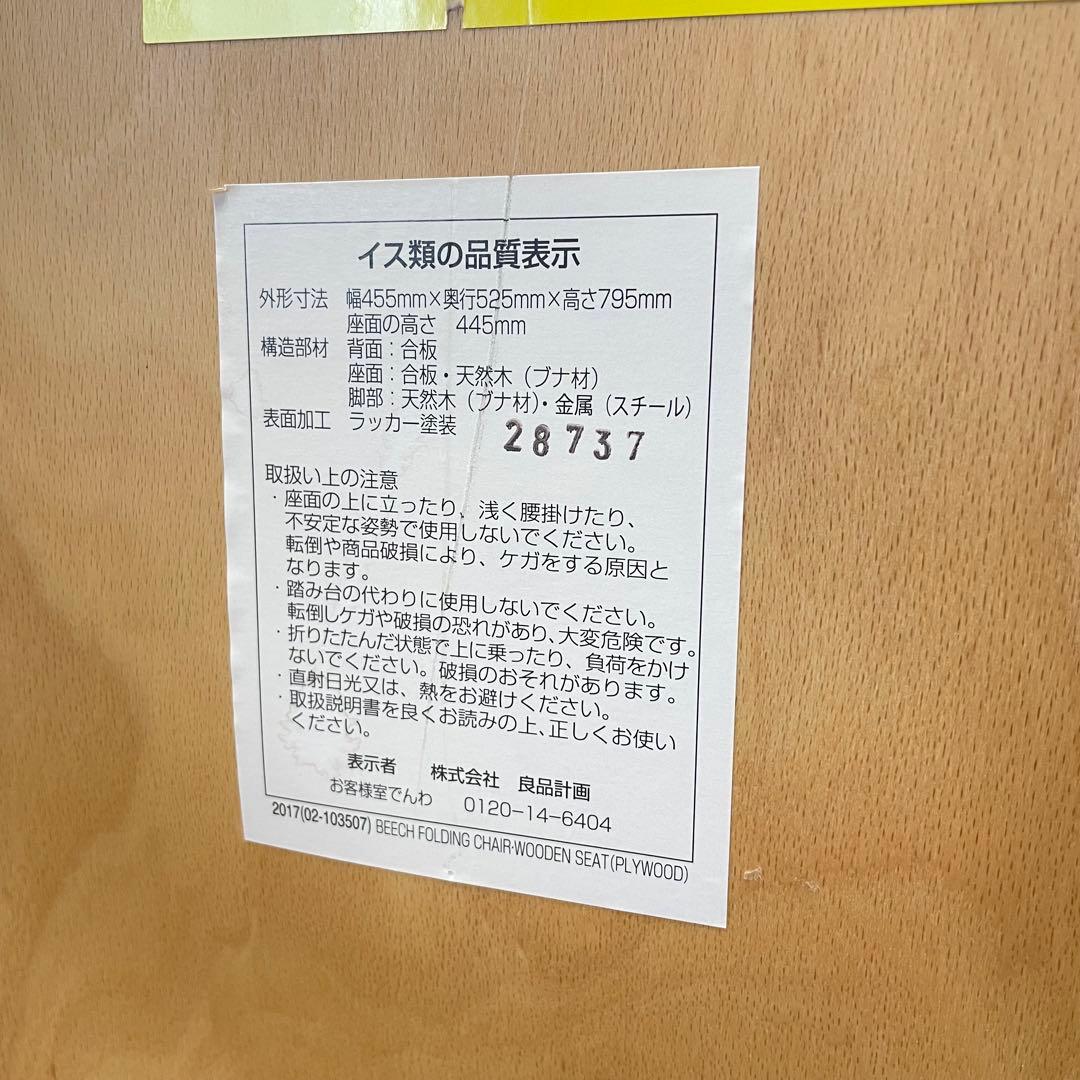 イス類の品質表示
外形寸法 幅455mm×奥行525mm×高さ795mm
座面の高さ 445mm
構造部材 背面：合板
座面：合板・天然木（ブナ材）
脚部：天然木（ブナ材）・金属（スチール）
表面加工 ラッカー塗装
28737
取扱い上の注意
・座面の上に立ったり、浅く腰掛けたり、
不安定な姿勢で使用しないでください。
転倒や商品破損により、ケガをする原因と
なります。
・踏み台の代わりに使用しないでください。
転倒しケガや破損の恐れがあり、大変危険です。
・折りたたんだ状態で上に乗ったり、負荷をかけ
ないでください。破損のおそれがあります。
・直射日光又は、熱をお避けください。
・取扱説明書を良くお読みの上、正しくお使い
ください。
表示者 株式会社 良品計画
お客様室でんわ 0120-14-6404
2017(02-103507) BEECH FOLDING CHAIR・WOODEN SEAT(PLYWOOD)